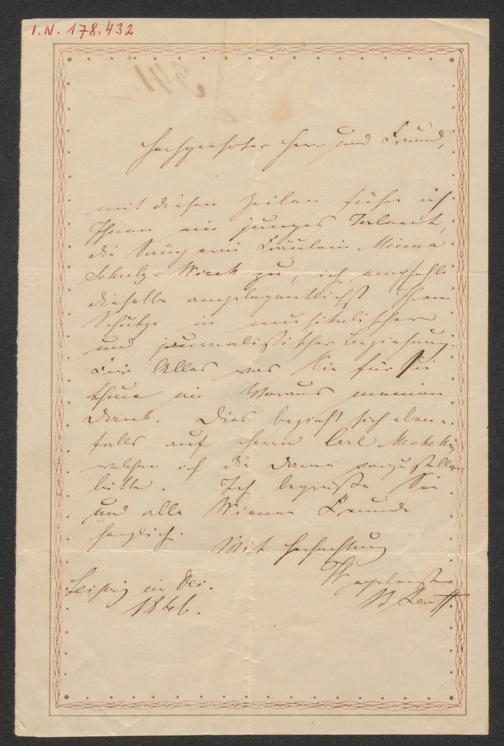 I.N. 178.432
Hochgeehrter Herr und Freund,
mit diesen Zeilen führe ich
Ihnen ein junges Talent,
die Sängerin Fräulein Minna
Schulz-Wieck zu, ich empfehle
dieselbe angelegentlichst Ihrem
Schutze in musikalischer
und journalistischer Beziehung.
Für Alles was Sie für sie
thun im Voraus meinen
Dank. Dies bezieht sich eben-
falls auf Herrn Carl
welchem ich die Dame vorzustellen
bitte. Ich begrüße Sie
und alle Wiener Freunde
herzlich.
Mit Hochachtung
Ihr ergebenster
Leipzig im
1846.